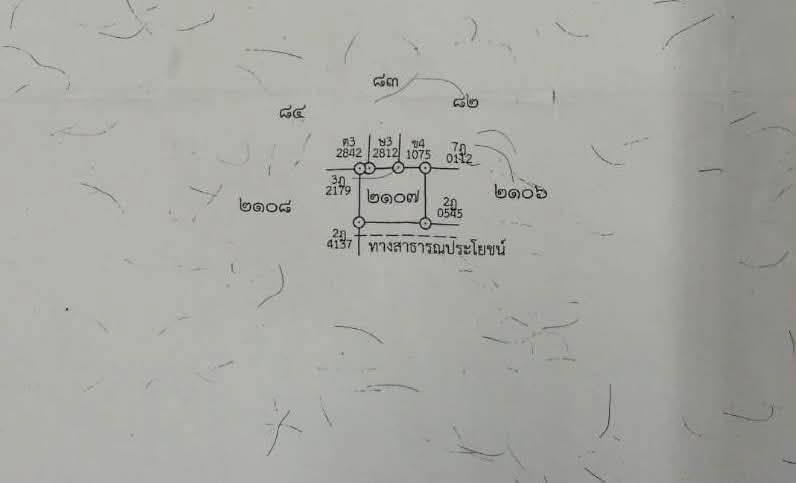 ๘๓
๘๒
๘๔
ต3 ษ3 ข4 7ฦ
2842 2812 1075 0112
3ฦ
2179
๒๑๐๗
๒๑๐๖
๒๑๐๘
2ฦ
0545
2ฦ
4137
ทางสาธารณประโยชน์